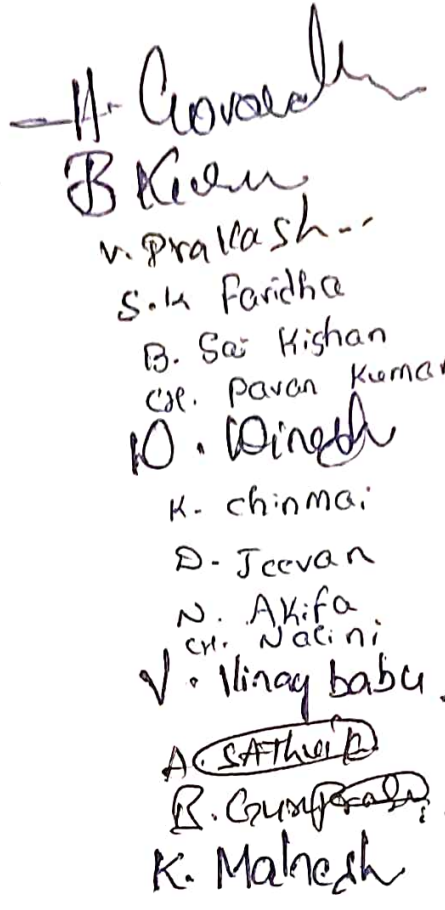 H. Govardh
B Kiran
V. Prakash..
S.k Faridha
B. Sai Kishan
CH. Pavan Kumar
D. Dinesh
K. chinmai
D. Jeevan
N. Akifa
CH. Nalini
V. Vinay babu.
A. SAThwik
B.
K. Mahesh